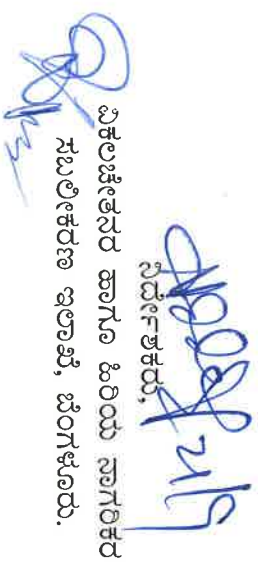 ನಿರ್ದೇಶಕರು,
ವಿಕಲಚೇತನರ ಹಾಗೂ ಹಿರಿಯ ನಾಗರಿಕರ
ಸಬಲೀಕರಣ ಇಲಾಖೆ, ಬೆಂಗಳೂರು.